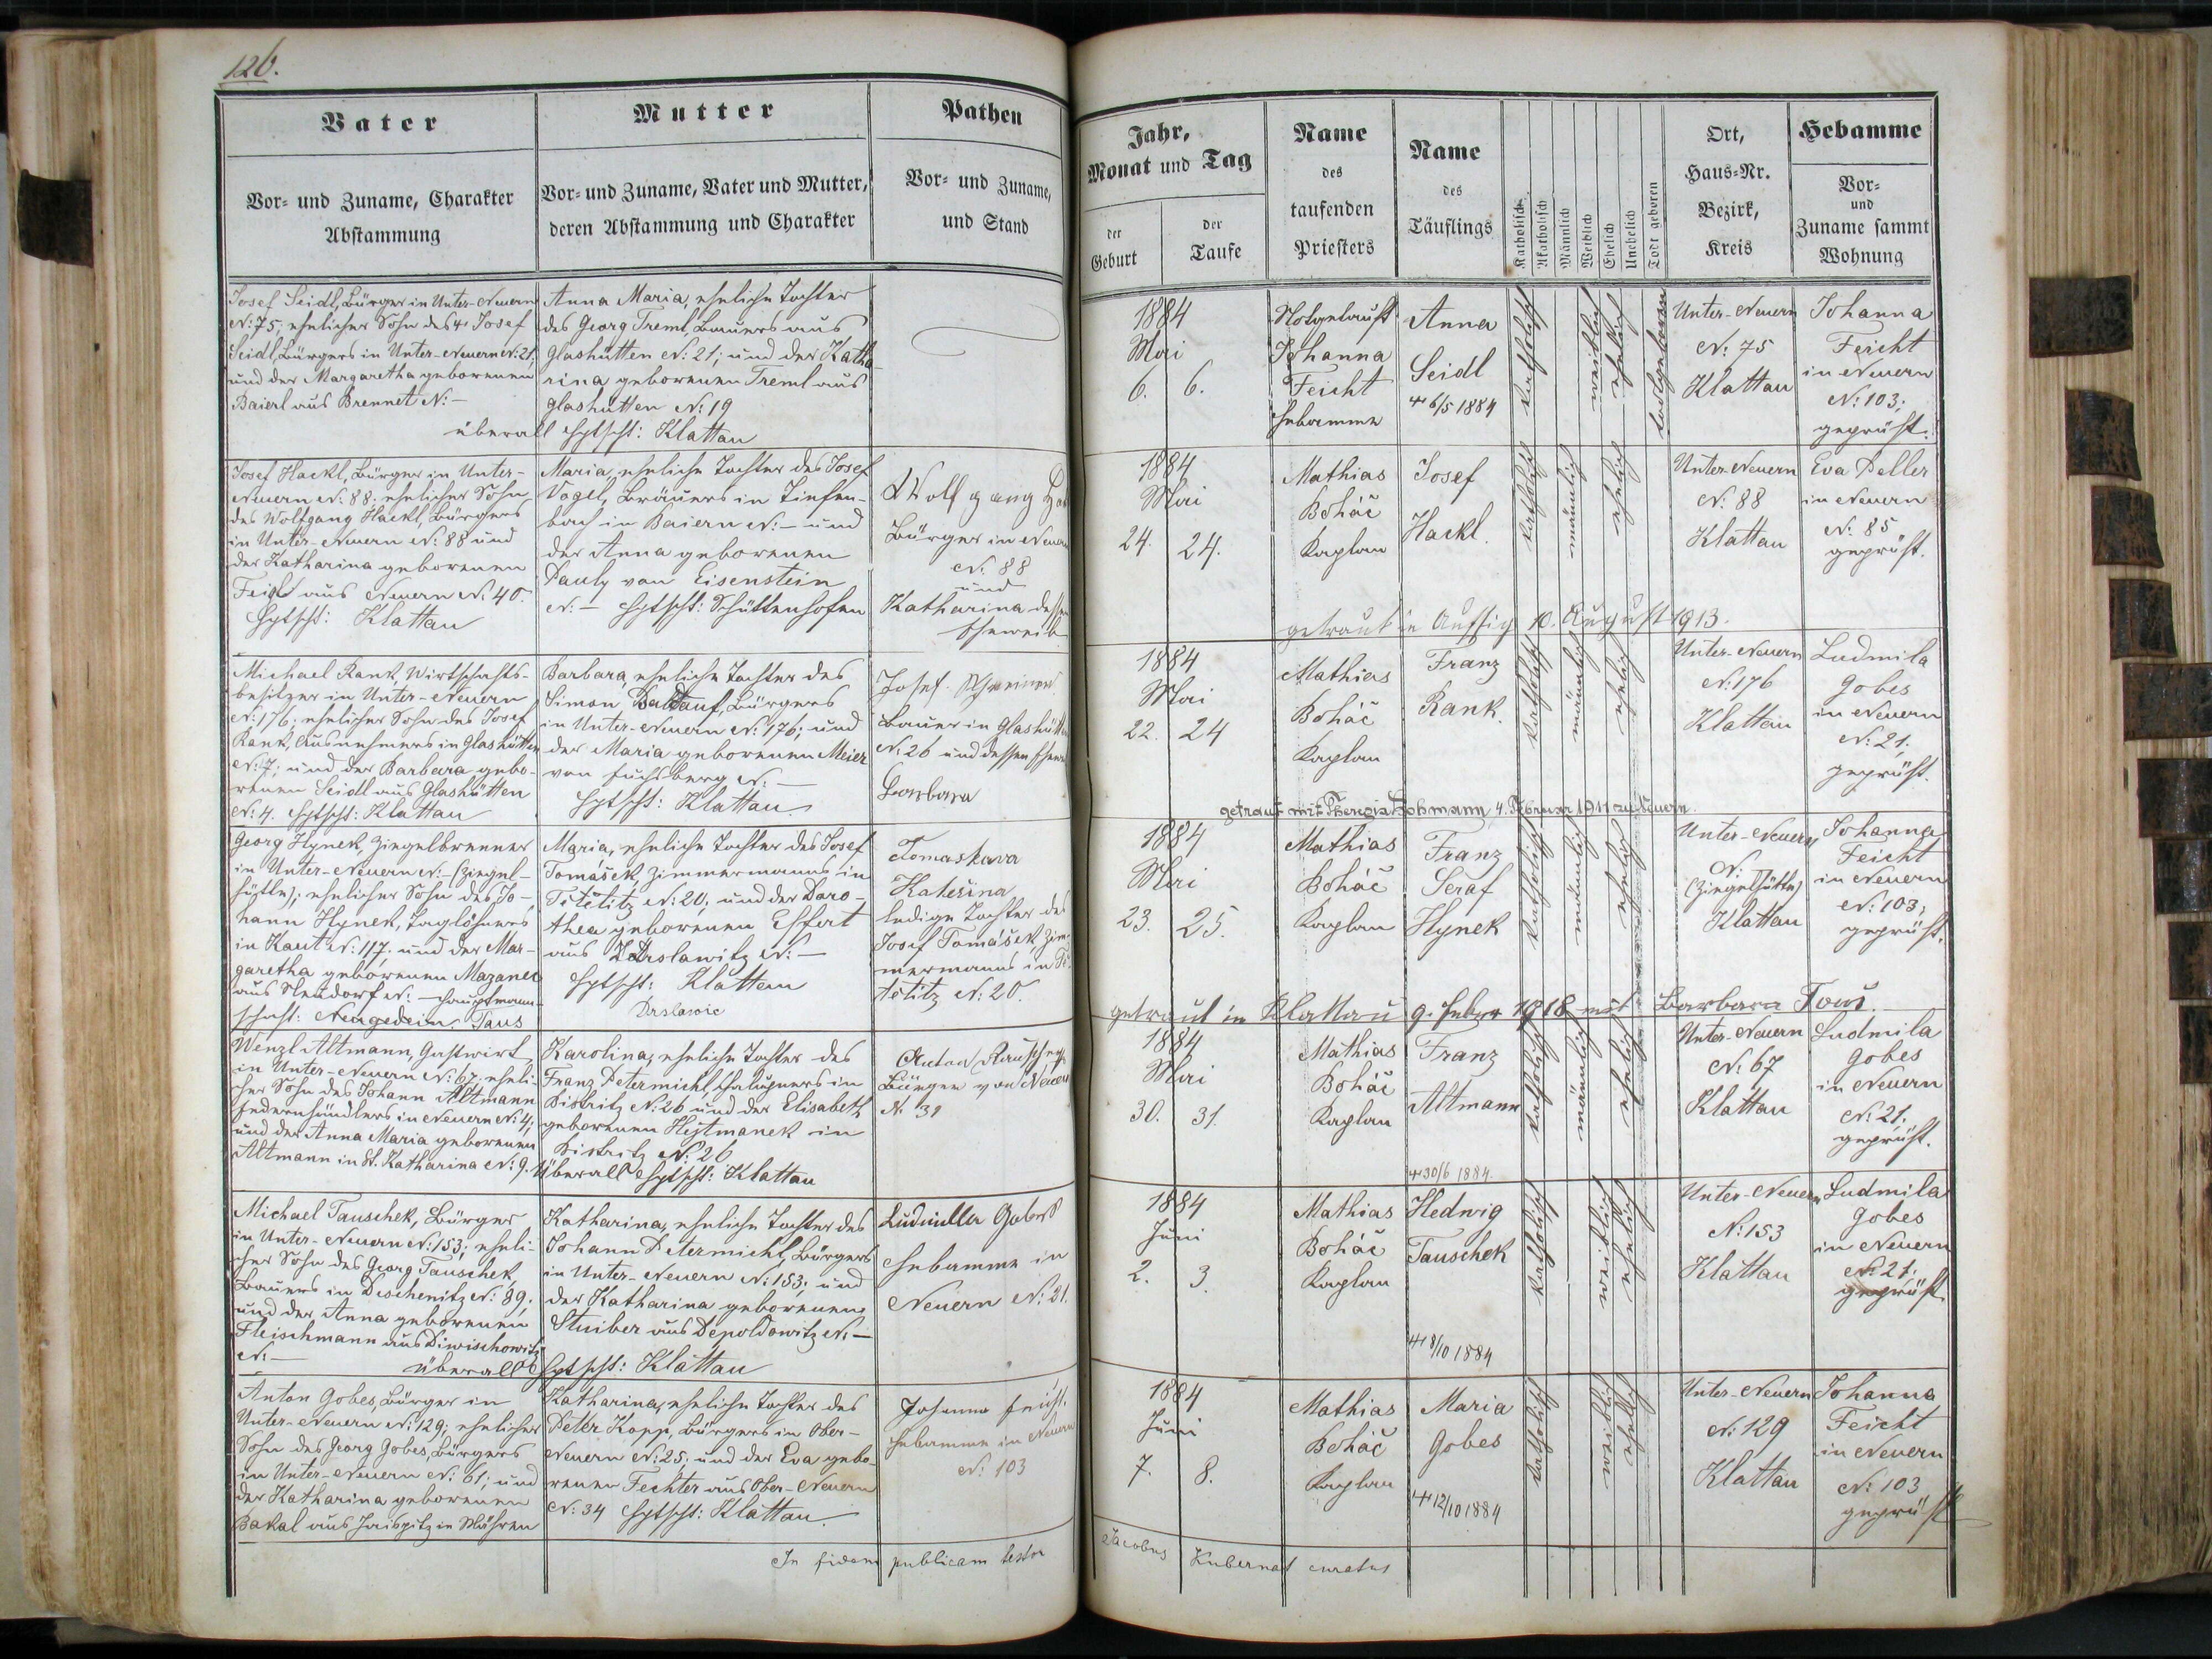 126.
Vater
Mutter
Pathen
Vor- und Zuname, Charakter
Abstammung
Vor- und Zuname, Vater und Mutter,
deren Abstammung und Charakter
Vor- und Zuname,
und Stand
Josef Seidl, Bürger in Unter-Neuern
N: 75; ehelicher Sohn des Josef
Seidl, Bürgers in Unter-Neuern N: 21;
und der Margaretha geborenen
Baierl aus Brennet N: –
Anna Maria, eheliche Tochter
des Georg Treml, Bauers aus
Glashütten N: 21; und der Katha-
rina geborenen Treml aus
Glashütten N: 19
überall Hptschft: Klattau
Josef Hackl, Bürger in Unter-
Neuern N: 88; ehelicher Sohn
des Wolfgang Hackl, Bürgers
in Unter-Neuern N: 88 und
der Katharina geborenen
aus Neuern N: 40.
Hptschft: Klattau
Maria, eheliche Tochter des Josef
Vogel, Bräuers in Tiefen-
bach in Baiern N: – und
der Anna geborenen
Pauly von Eisenstein
N: – Hptschft: Schüttenhofen
Wolfgang
Bürger in Neuern
N: 88
und
Katharina dessen
Eheweib
Michael Rank, Wirtschafts-
besitzer in Unter-Neuern
N: 176; ehelicher Sohn des Josef
Rank, Ausnehmers in Glashütten
N: 7; und der Barbara gebo-
renen Seidl aus Glashütten
N: 4. Hptschft: Klattau
Barbara, eheliche Tochter des
Simon Baldauf, Bürgers
in Unter-Neuern N: 176; und
der Maria geborenen Meier
von Fuchsberg N: –
Hptschft: Klattau
Josef
Bauer in Glashütten
N: 26 und dessen
Barbara
Georg Hynek, Ziegelbrenner
in Unter-Neuern N: – (Ziegel-
hütte); ehelicher Sohn des Jo-
hann Hynek, Taglöhners
in Kaut N: 117; und der Mar-
garetha geborenen Mazanec
aus N: – Hauptmann-
schaft: Taus
Maria, eheliche Tochter des Josef
Tomášek, Zimmermanns in
Tětětitz N: 20; und der Doro-
thea geborenen Effert
aus Drslawitz N: –
Hptschft: Klattau
Drslavic
Tomaskova
Kateřina
ledige Tochter des
Josef Tomášek, Zim-
mermanns in Tě-
tětitz N: 20.
Wenzl Altmann, Gastwirt
in Unter-Neuern N: 67; eheli-
cher Sohn des Johann Altmann
Federnhändlers in Neuern N: 4;
und der Anna Maria geborenen
Altmann in St. Katharina N: 9.
Karolina, eheliche Tochter des
Franz Petermichl, Chalupners in
Bistritz N: 26 und der Elisabeth
geborenen Hejtmanek in
Bistritz N: 26
überall Hptschft: Klattau
Anton
Bürger von Neuern
N. 31
Michael Tauschek, Bürger
in Unter-Neuern N: 153; eheli-
cher Sohn des Georg Tauschek,
Bauers in Deschenitz N: 89.
und der Anna geborenen
Fleischmann aus Diwischowitz
N: –
Katharina, eheliche Tochter des
Johann Petermichl, Bürgers
in Unter-Neuern N: 153; und
der Katharina geborenen
Stuiber aus Depoldowitz N: –
überall Hptschft: Klattau
Ludmilla Gobes
Hebamme in
Neuern N: 21.
Anton Gobes, Bürger in
Unter-Neuern N: 129; ehelicher
Sohn des Georg Gobes, Bürgers
in Unter-Neuern N: 61; und
der Katharina geborenen
Bakal aus Jaispitz in Mähren
Katharina, eheliche Tochter des
Peter Kopp, Bürgers in Ober-
Neuern N: 25; und der Eva gebo-
renen Fechter aus Ober-Neuern
N: 34 Hptschft: Klattau.
Johanna Feicht.
Hebamme in Neuern
N: 103
In fidem publicam testor
Jahr,
Monat und Tag
der
Geburt
der
Taufe
Name
des
taufenden
Priesters
Name
des
Täuflings
Katholisch
Akatholisch
Männlich
Weiblich
Ehelich
Unehelich
Todt geboren
Ort,
Haus-Nr.
Bezirk,
Kreis
Hebamme
Vor-
und
Zuname sammt
Wohnung
1884
Mai
6. 6.
Notgetauft
Johanna
Feicht
Hebamme
Anna
Seidl
6/5 1884
katholisch
weiblich
ehelich
todtgeboren
Unter-Neuern
N: 75
Klattau
Johanna
Feicht
in Neuern
N: 103;
geprüft.
1884
Mai
24. 24.
Mathias
Boháč
Kaplan
Josef
Hackl.
katholisch
männlich
ehelich
Unter-Neuern
N: 88
Klattau
Eva Peller
in Neuern
N: 85
geprüft.
getraut in Aussig 10. August 1913.
1884
Mai
22. 24
Mathias
Boháč
Kaplan
Franz
Rank.
katholisch
männlich
ehelich
Unter-Neuern
N: 176
Klattau
Ludmila
Gobes
in Neuern
N: 21.
geprüft.
getraut mit Therezia 4. Februar 1911 zu Neuern.
1884
Mai
23. 25.
Mathias
Boháč
Kaplan
Franz
Seraf
Hynek
katholisch
männlich
ehelich
Unter-Neuern
N:
(Ziegelhütte)
Klattau
Johanna
Feicht
in Neuern
N: 103;
geprüft.
getraut in Klattau 9. Feber 1918 mit Barbara
1884
Mai
30. 31.
Mathias
Boháč
Kaplan
Franz
Altmann
katholisch
männlich
ehelich
Unter-Neuern
N: 67
Klattau
Ludmila
Gobes
in Neuern
N: 21.
geprüft.
30/6 1884.
1884
Juni
2. 3.
Mathias
Boháč
Kaplan
Hedwig
Tauschek
8/10 1884
katholisch
weiblich
ehelich
Unter-Neuern
N: 153
Klattau
Ludmila
Gobes
in Neuern
N: 21.
geprüft.
1884
Juni
7. 8.
Mathias
Boháč
Kaplan
Maria
Gobes
12/10 1884
katholisch
weiblich
ehelich
Unter-Neuern
N: 129
Klattau
Johanna
Feicht
in Neuern
N: 103
geprüft
Jacobus Kubernat curatus